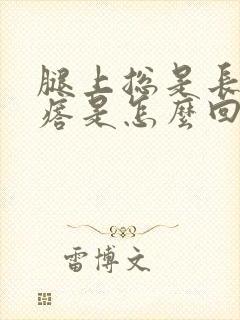 腿上総是長
痞是怎麼回
雷博文